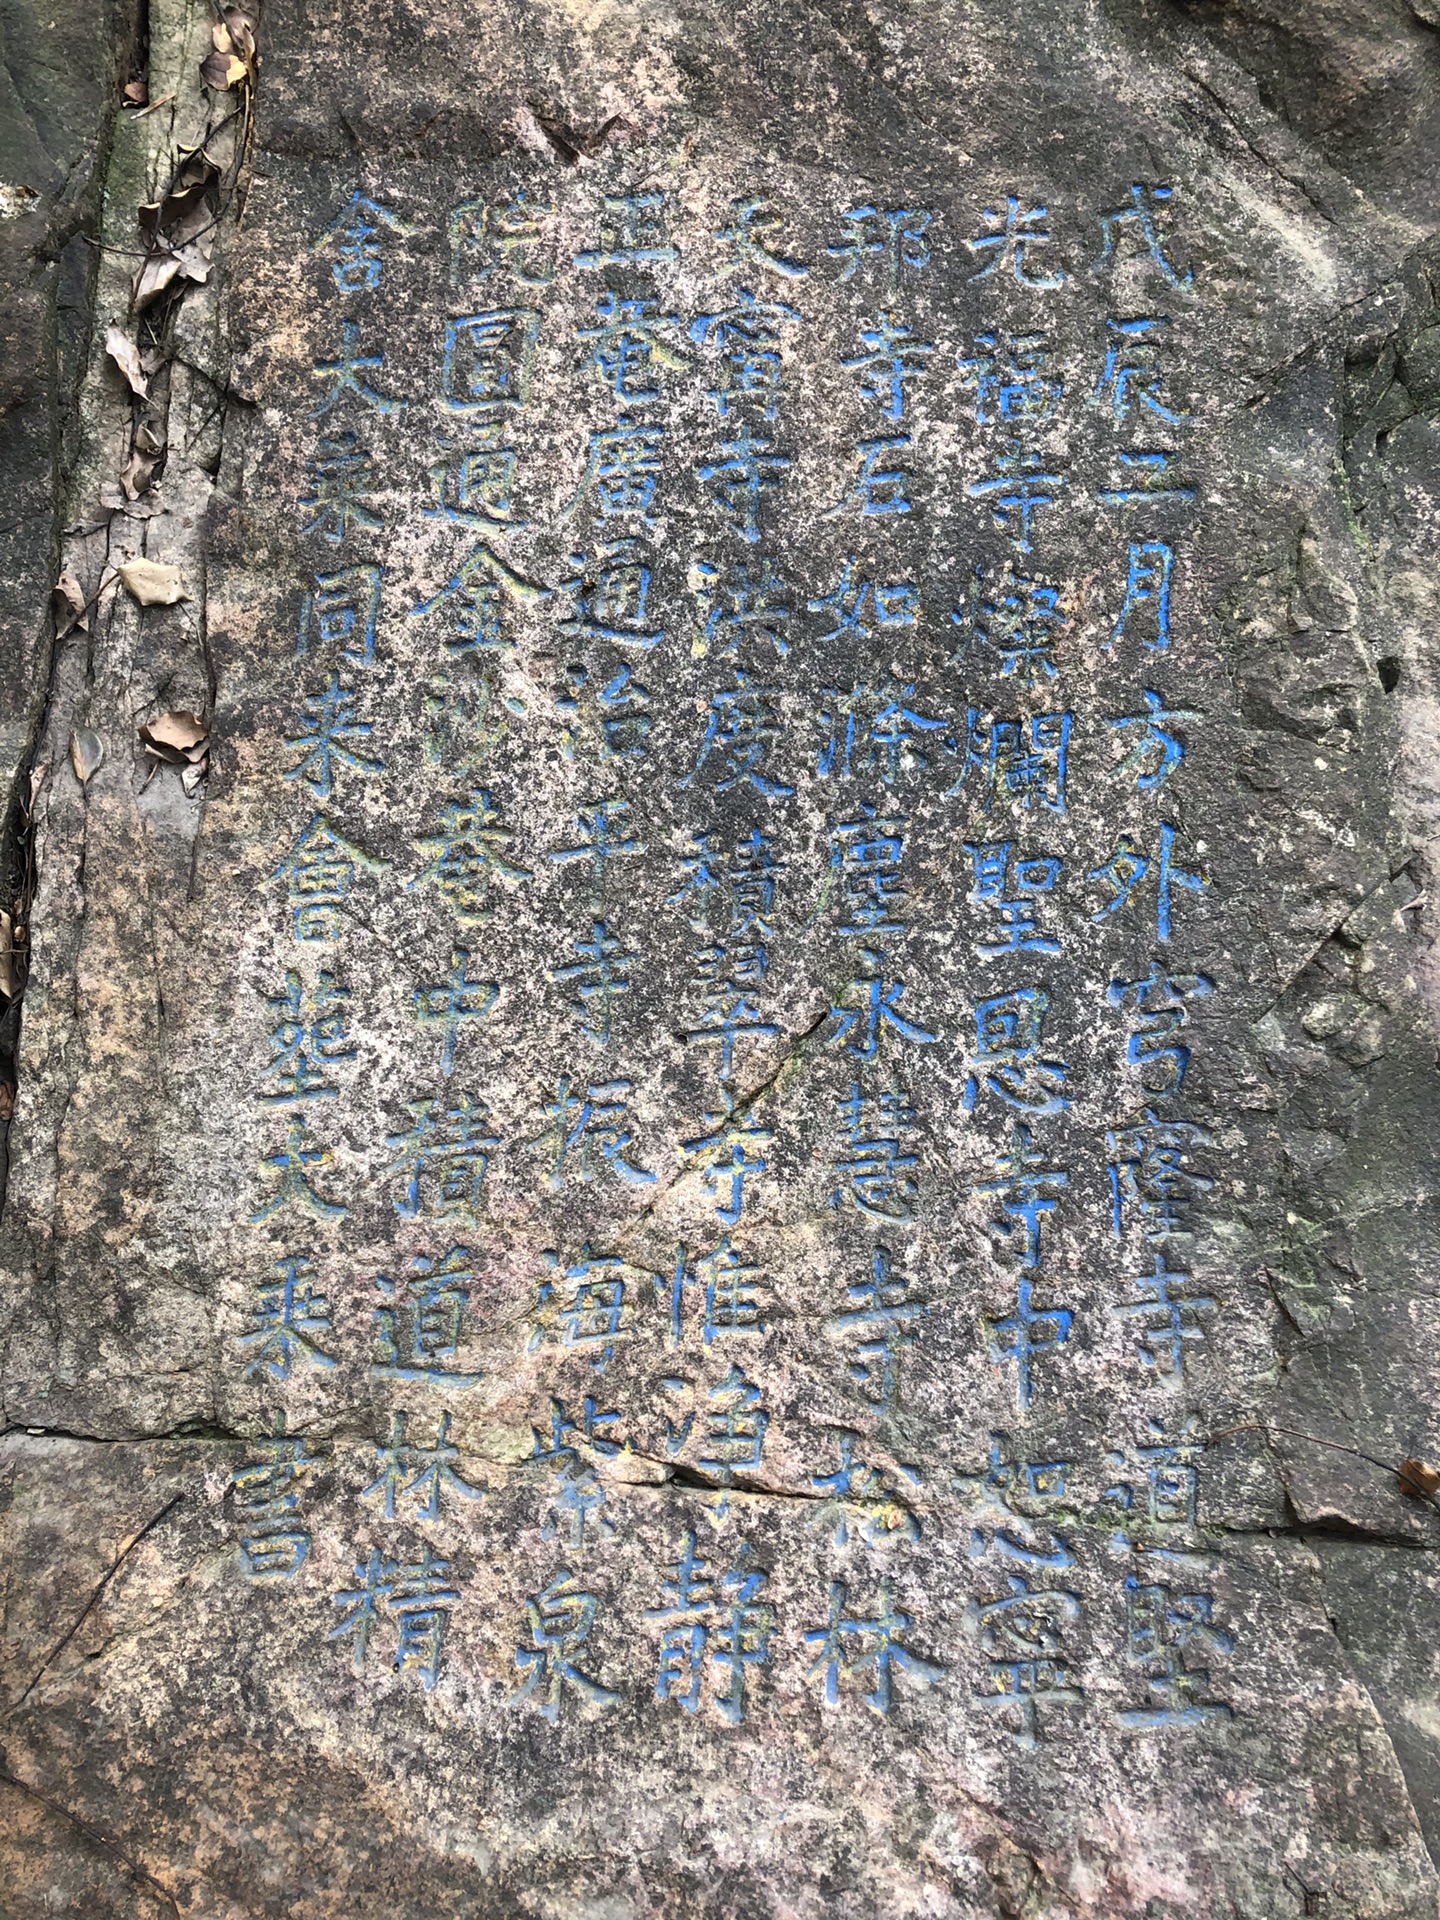 戊辰二月方外穹窿寺道堅
光福寺燦爛聖恩寺中恕寧
邦寺石如滌塵永慧寺松林
天甯寺洪度積翠寺惟淨靜
正菴廣通治平寺振海紫泉
院圓通金沙菴中積道林精
舍大乘同來會塟大乘書